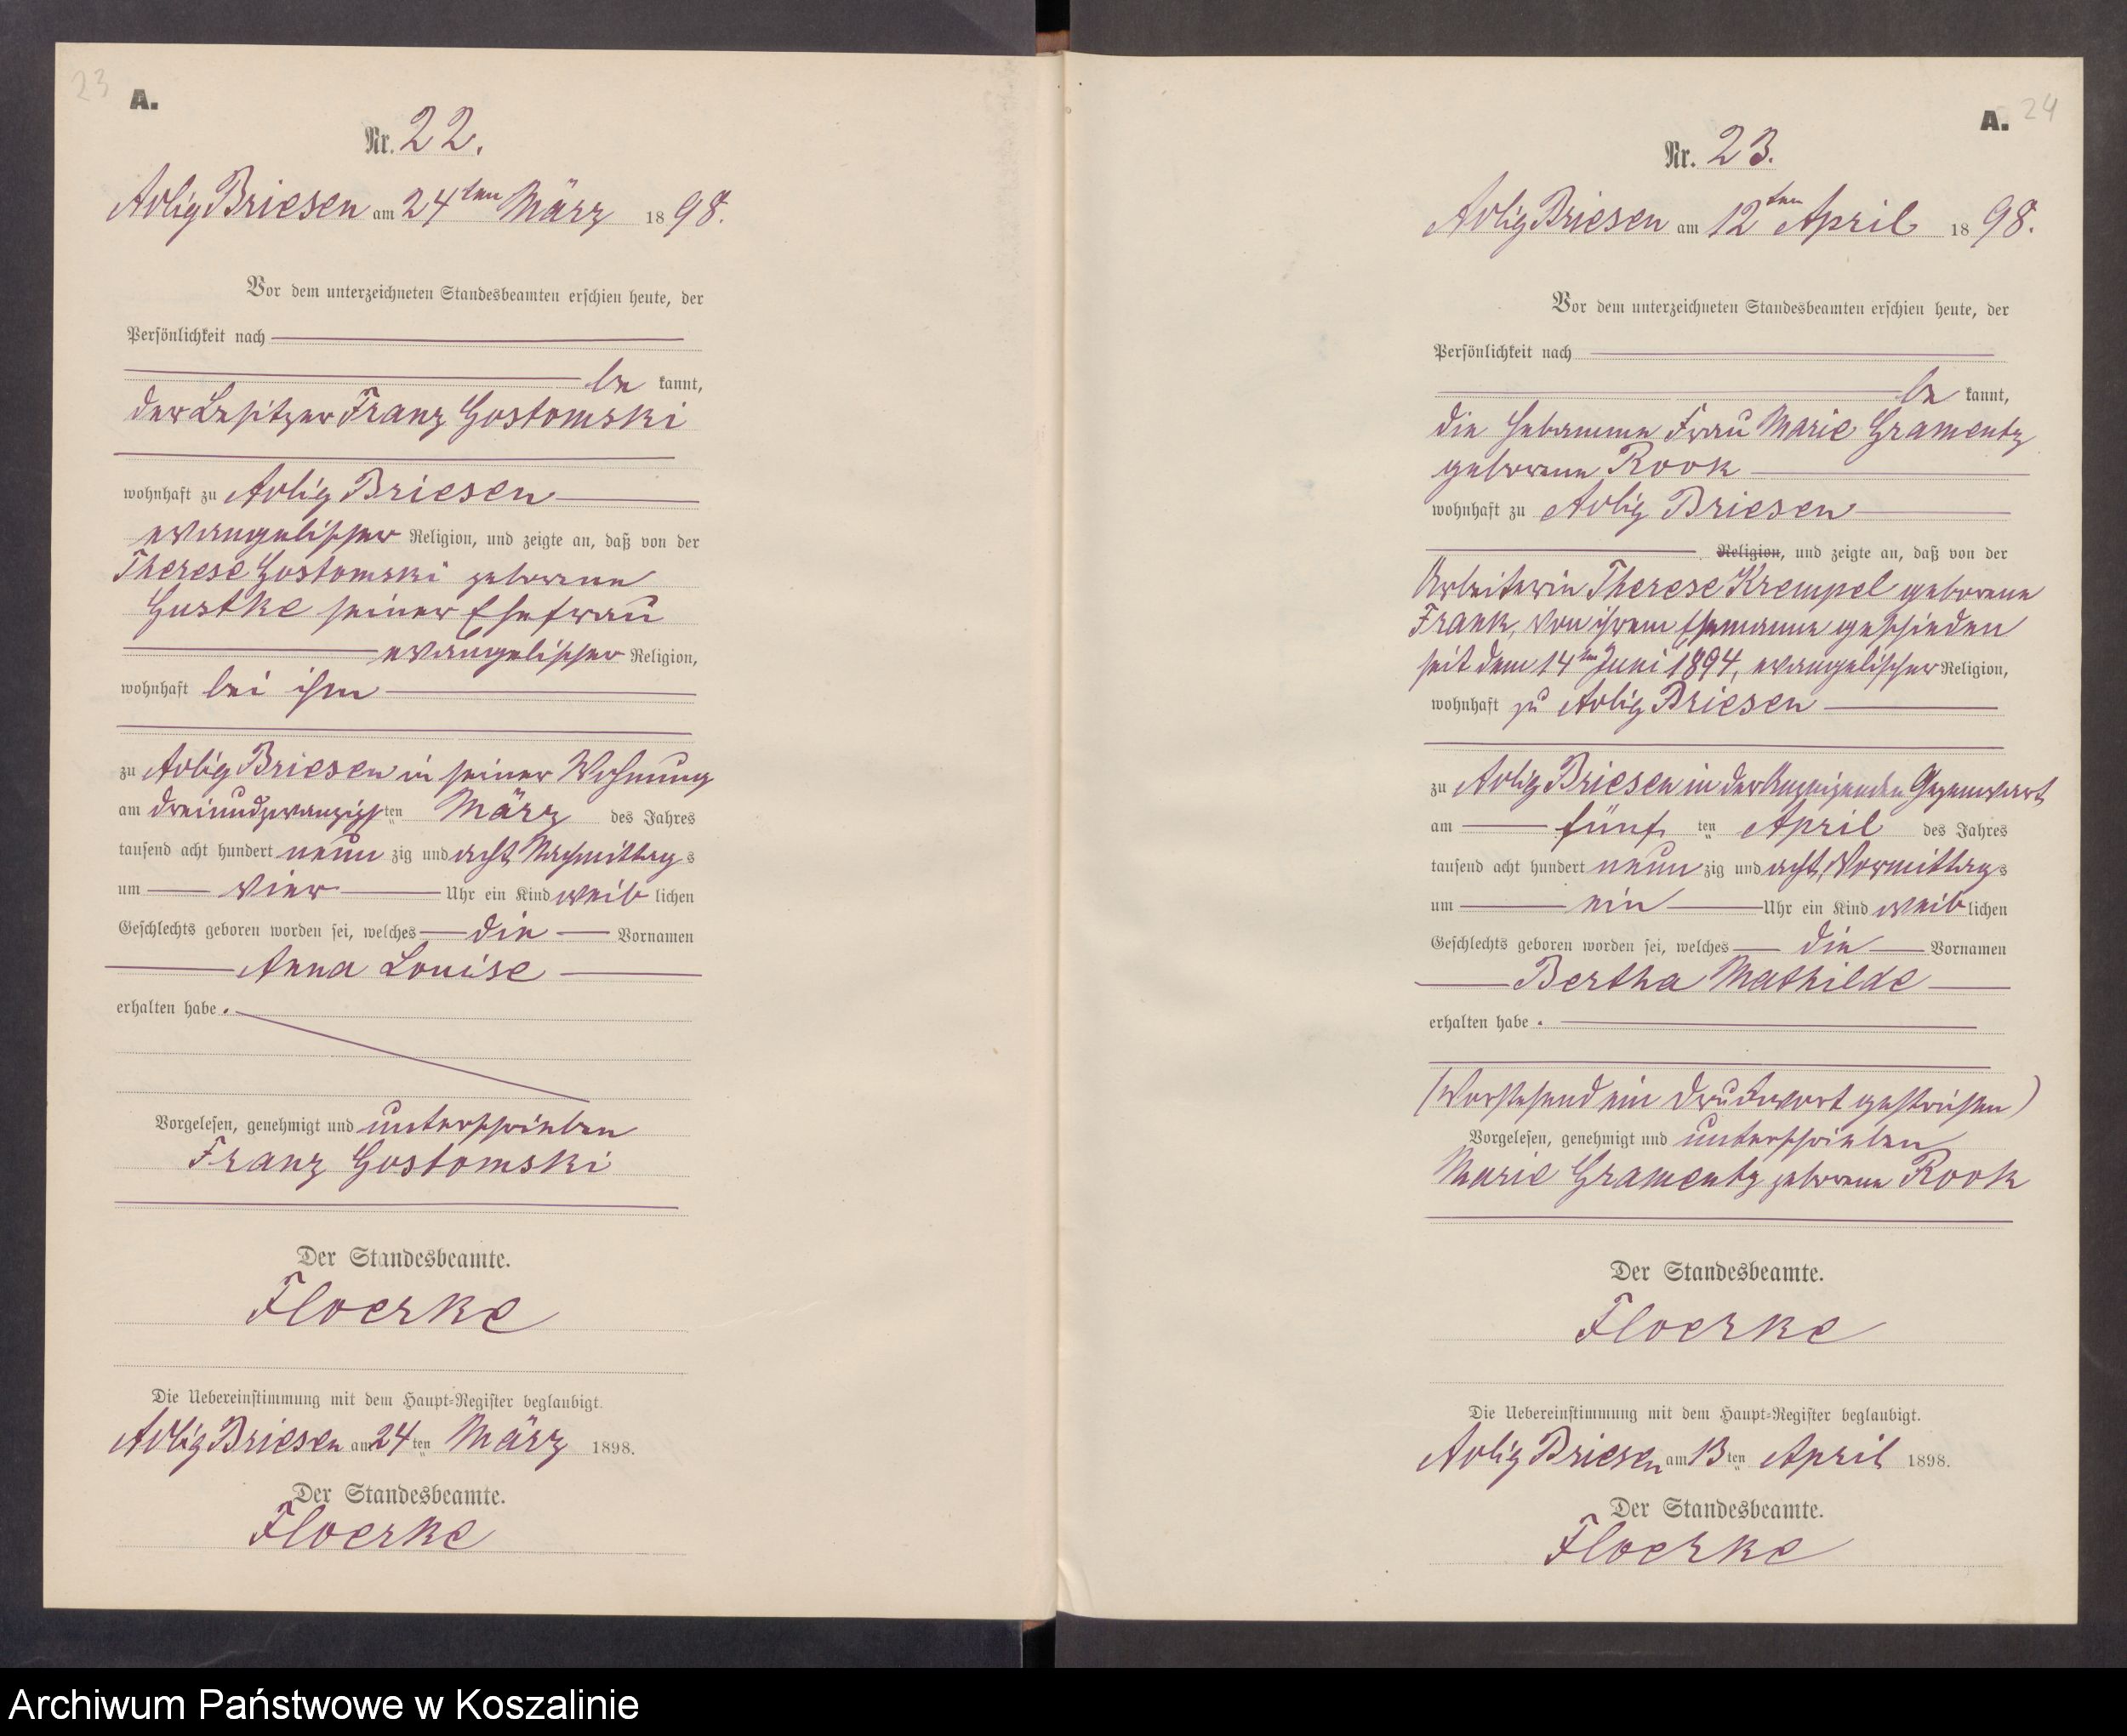 23
A.
Nr. 22.
Adlig Briesen am 24ten März 1898.
Vor dem unterzeichneten Standesbeamten erschien heute, der
Persönlichkeit nach
bekannt,
der Besitzer Franz Gostomski
wohnhaft zu Adlig Briesen
evangelischer Religion, und zeigte an, daß von der
Therese Gostomski geborene
Gustke seiner Ehefrau
evangelischer Religion,
wohnhaft bei ihm
zu Adlig Briesen in seiner Wohnung
am dreiundzwanzigsten März des Jahres
tausend acht hundert neunzig und acht, Nachmittags
um vier Uhr ein Kind weiblichen
Geschlechts geboren worden sei, welches die Vornamen
Anna Louise
erhalten habe.
Vorgelesen, genehmigt und unterschrieben
Franz Gostomski
Der Standesbeamte.
Floerke
Die Uebereinstimmung mit dem Haupt-Register beglaubigt.
Adlig Briesen am 24ten März 1898.
Der Standesbeamte.
Floerke
A. 24
Nr. 23.
Adlig Briesen am 12ten April 1898.
Vor dem unterzeichneten Standesbeamten erschien heute, der
Persönlichkeit nach
bekannt,
die Hebamme Frau Marie Gramentz
geborene Rook
wohnhaft zu Adlig Briesen
Religion, und zeigte an, daß von der
Arbeiterin Therese Krempel geborene
Frank, von ihrem Ehemanne geschieden
seit dem 14ten Juni 1894, evangelischer Religion,
wohnhaft zu Adlig Briesen
zu Adlig Briesen in der Anzeigenden Gegenwart
am fünften April des Jahres
tausend acht hundert neunzig und acht, Vormittags
um ein Uhr ein Kind weiblichen
Geschlechts geboren worden sei, welches die Vornamen
Bertha Mathilde
erhalten habe.
(Vorstehend ein Druckwort gestrichen)
Vorgelesen, genehmigt und unterschrieben
Marie Gramentz geborene Rook
Der Standesbeamte.
Floerke
Die Uebereinstimmung mit dem Haupt-Register beglaubigt.
Adlig Briesen am 13ten April 1898.
Der Standesbeamte.
Floerke
Archiwum Państwowe w Koszalinie